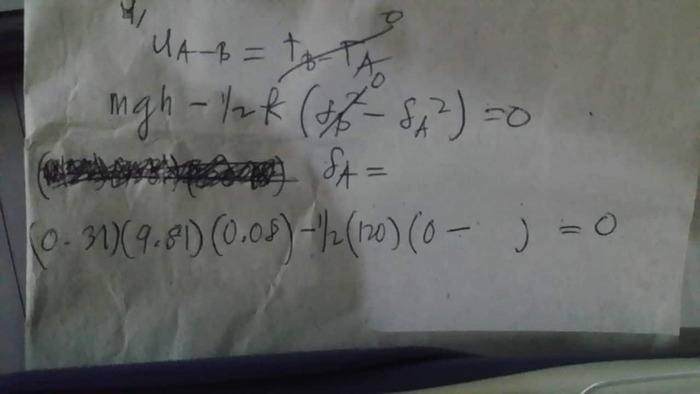 U A-B = T B - T A 0
mgh - 1/2 k (δ B ² 0 - δ A ²) = 0
δ A =
(0.31)(9.81)(0.08) - 1/2 (120) (0 - ) = 0